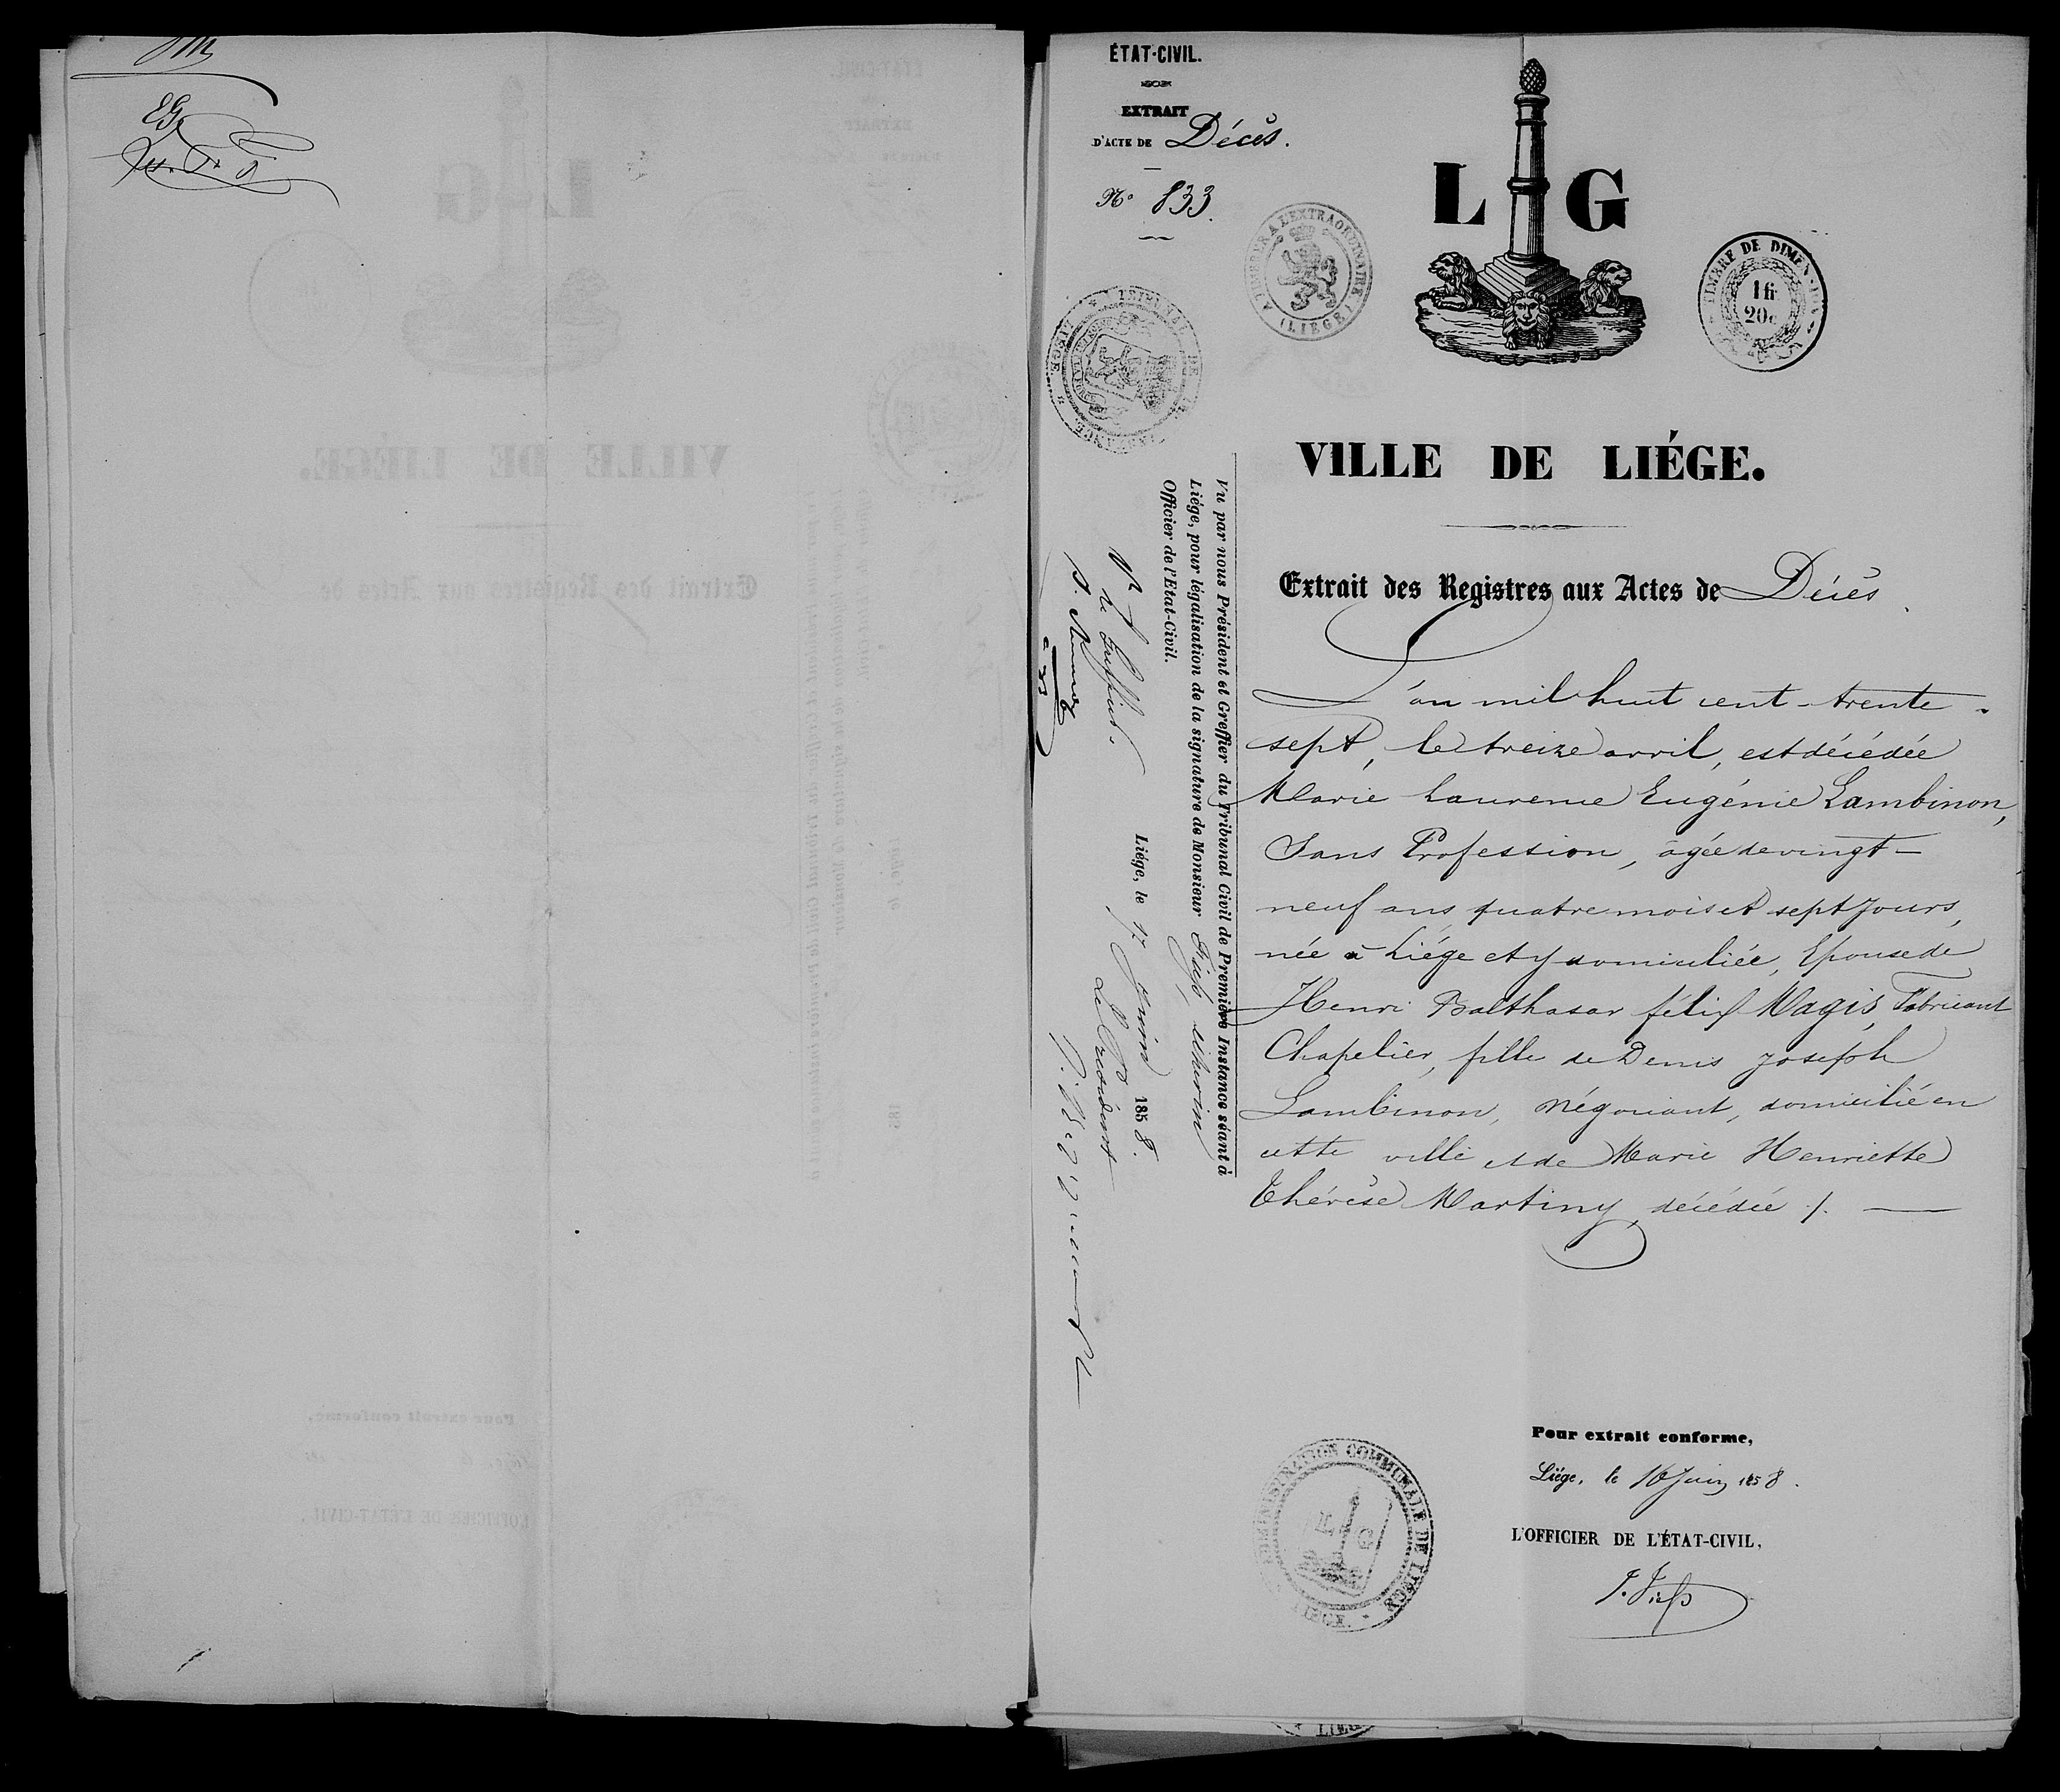 ÉTAT-CIVIL.
EXTRAIT
D'ACTE DE Décès.
No 833.
L G
A TIMBRER A L'EXTRAORDINAIRE
(LIEGE)
TIMBRE DE DIMENSION
1 fr
20c
VILLE DE LIÉGE.
Extrait des Registres aux Actes de Décès.
L'an mil huit cent-trente-
sept, le treize avril, est décédée
Marie Laurence Eugénie Lambinon,
Sans Profession, âgée de vingt-
neuf ans quatre mois et sept jours,
née à Liége et y domiciliée, Epouse de
Henri Balthasar félix Magis, Fabricant
Chapelier, fille de Denis Joseph
Lambinon, Négociant, domicilié en
cette ville et de Marie Henriette
Thérèse Martiny, décédée ./.
Pour extrait conforme,
Liége, le 16 Juin 1858.
L'OFFICIER DE L'ÉTAT-CIVIL,
ADMINISTRATION COMMUNALE DE LIEGE
LIEGE.
Vu par nous Président et Greffier du Tribunal Civil de Première Instance séant à
Liége, pour légalisation de la signature de Monsieur échevin
Officier de l'Etat-Civil.
Liége, le 17 Juin 1858.
Le Président